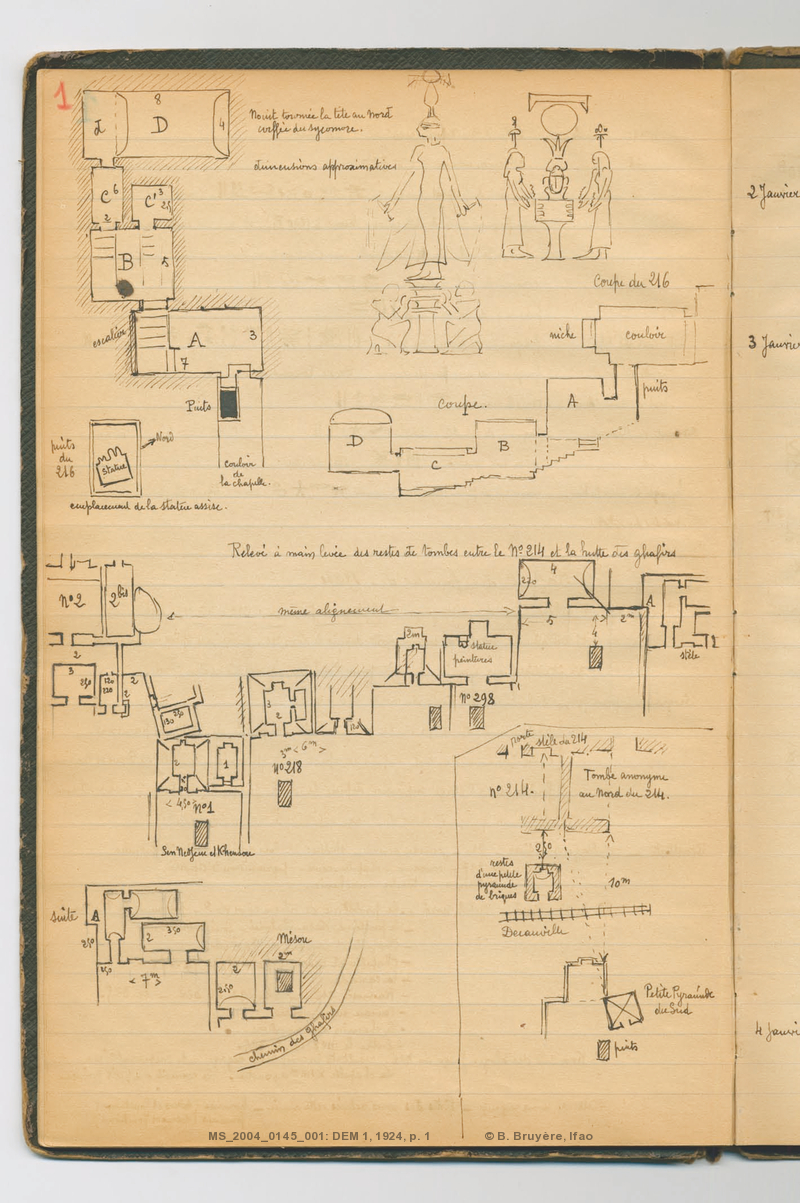 1
8
D
4
Nouït tournée la tête au Nord
coiffée du sycomore.
dimensions approximatives
C 6
2
C' 3
B
5
escalier
A
3
7
Puits
couloir
de
la chapelle.
puits
du
216
Nord
statue
emplacement de la statue assise.
Coupe du 216
niche
couloir
puits
Coupe.
A
B
C
D
2 Janvier
3 Janvier
4 Janvi
Relevé à main levée des restes de tombes entre le Nº 214 et la hutte des ghafirs
nº 2
2 bis
même alignement
4
5
4
2m
A
stèle
2
2
3
2
2m
statue
peintures
nº 298
3
2
3m < 6m >
nº 218
2
1
< 4,50
nº 1
Sen Nedjem et Khonsou
porte
stèle du 214
nº 214.
Tombe anonyme
au Nord du 214.
2,50
restes
d'une petite
pyramide
de briques
10m
Decauville
Petite Pyramide
du Sud
puits
suite
A
2,50
2
3,50
2,50
< 7m >
Mésou
2
2m
2,50
chemin des ghafirs
MS_2004_0145_001: DEM 1, 1924, p. 1
© B. Bruyère, Ifao